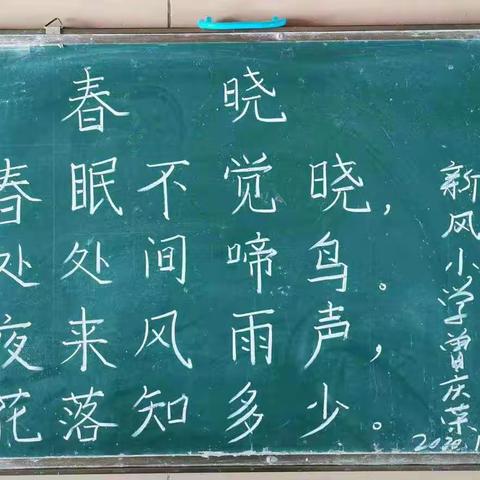 春晓
春眠不觉晓,
处处间啼鸟。
夜来风雨声,
花落知多少。
新风小学曾庆荣
2020.1